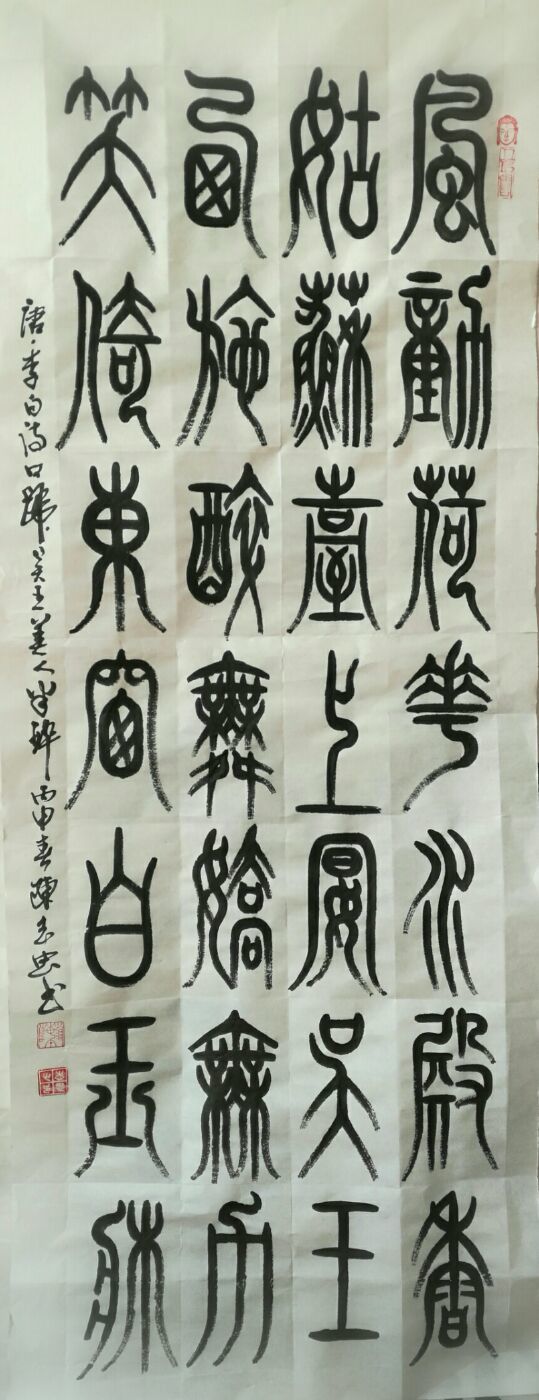 風動荷華水殿香
姑蘇臺上宴吳王
西施醉舞嬌無力
笑倚東窗白玉牀
唐·李白诗口號吴王美人半醉 丙申春陳书